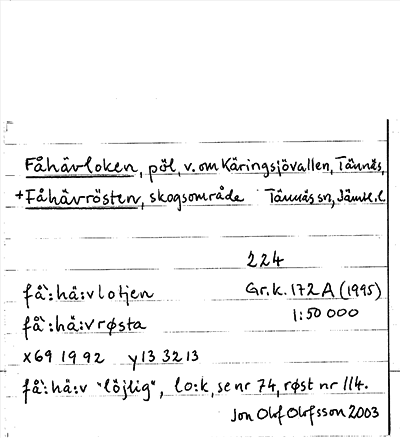 Fåhåvloken, pöl, v. om Käringsjövallen, Tännäs,
+Fåhåvrösten, skogsområde Tännäs sn, Jämtl. l.
224
få`:hå:vlotjen Gr.k. 172 A (1995)
få`:hå:vrøsta 1:50 000
x69 19 92 y13 32 13
få:hå:v "löjlig", lo:k, se nr 74, røst nr 114.
Jon Olof Olofsson 2003